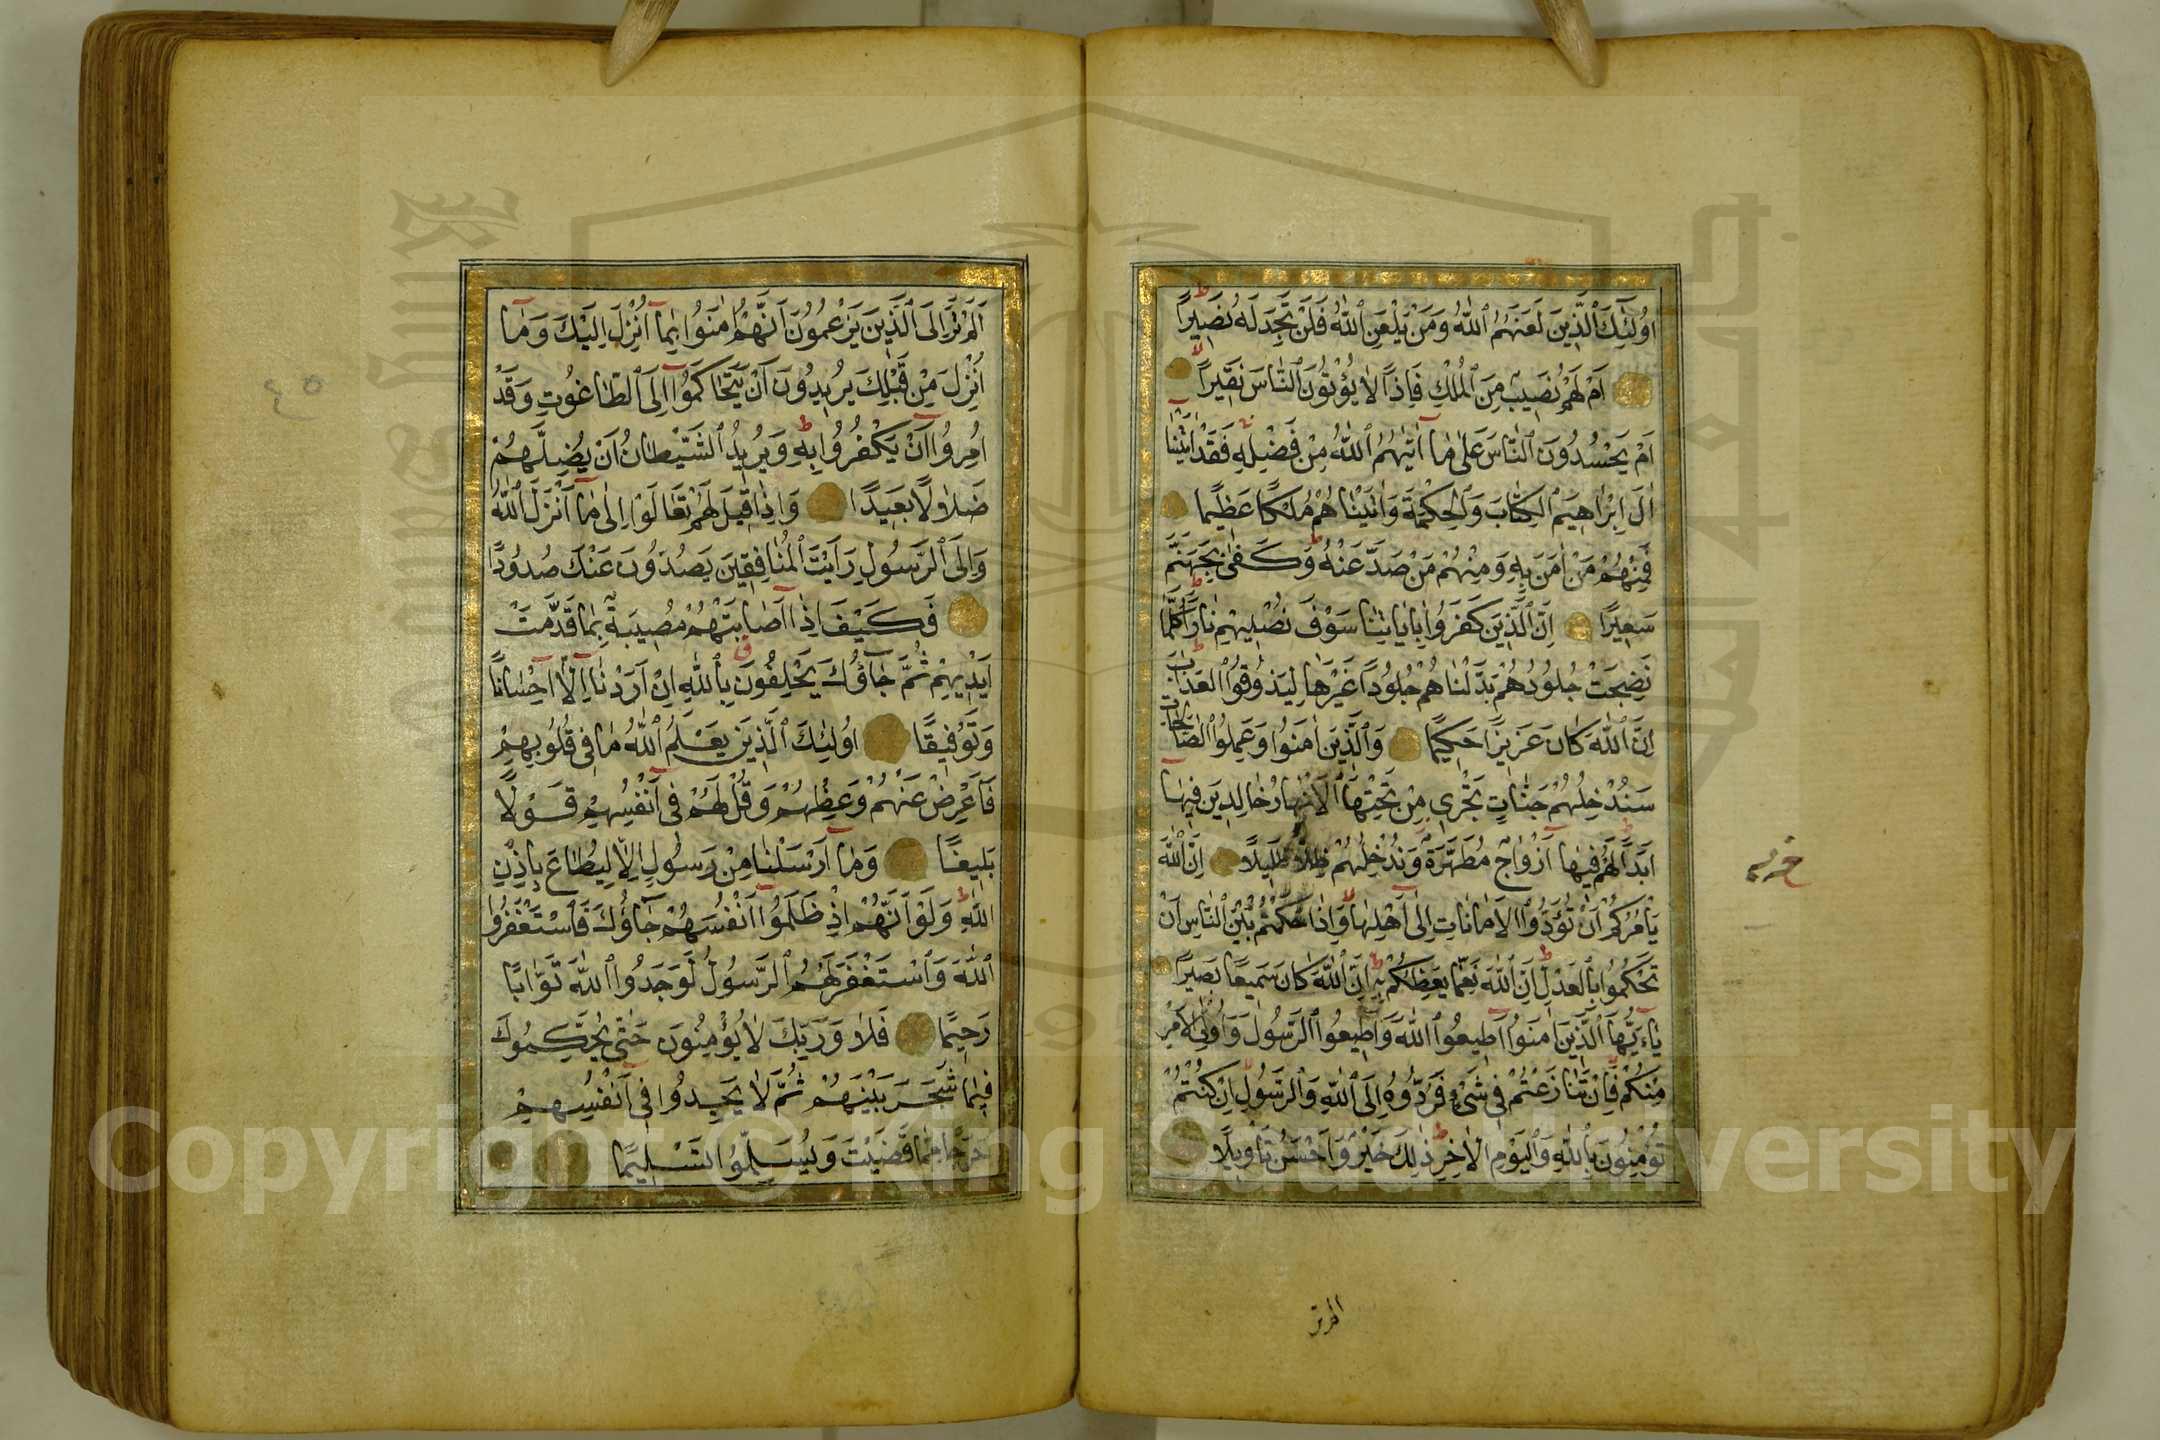 اُولٰئِكَ الَّذِينَ لَعَنَهُمُ اللّٰهُ وَمَنْ يَلْعَنِ اللّٰهُ فَلَنْ تَجِدَ لَهُ نَصِيرًا
اَمْ لَهُمْ نَصِيبٌ مِنَ الْمُلْكِ فَاِذًا لَا يُؤْتُونَ النَّاسَ نَقِيرًا
اَمْ يَحْسُدُونَ النَّاسَ عَلٰى مَا اٰتٰيهُمُ اللّٰهُ مِنْ فَضْلِهِ فَقَدْ اٰتَيْنَا
اٰلَ اِبْرَاهِيمَ الْكِتَابَ وَالْحِكْمَةَ وَاٰتَيْنَاهُمْ مُلْكًا عَظِيمًا
فَمِنْهُمْ مَنْ اٰمَنَ بِهِ وَمِنْهُمْ مَنْ صَدَّ عَنْهُ وَكَفٰى بِجَهَنَّمَ
سَعِيرًا اِنَّ الَّذِينَ كَفَرُوا بِاٰيَاتِنَا سَوْفَ نُصْلِيهِمْ نَارًا كُلَّمَا
نَضِجَتْ جُلُودُهُمْ بَدَّلْنَاهُمْ جُلُودًا غَيْرَهَا لِيَذُوقُوا الْعَذَابَ
اِنَّ اللّٰهَ كَانَ عَزِيزًا حَكِيمًا وَالَّذِينَ اٰمَنُوا وَعَمِلُوا الصَّالِحَاتِ
سَنُدْخِلُهُمْ جَنَّاتٍ تَجْرِى مِنْ تَحْتِهَا الْاَنْهَارُ خَالِدِينَ فِيهَا
اَبَدًا لَهُمْ فِيهَا اَزْوَاجٌ مُطَهَّرَةٌ وَنُدْخِلُهُمْ ظِلًّا ظَلِيلًا اِنَّ اللّٰهَ
يَأْمُرُكُمْ اَنْ تُؤَدُّوا الْاَمَانَاتِ اِلٰى اَهْلِهَا وَاِذَا حَكَمْتُمْ بَيْنَ النَّاسِ اَنْ
تَحْكُمُوا بِالْعَدْلِ اِنَّ اللّٰهَ نِعِمَّا يَعِظُكُمْ بِهِ اِنَّ اللّٰهَ كَانَ سَمِيعًا بَصِيرًا
يَاءَيُّهَا الَّذِينَ اٰمَنُوا اَطِيعُوا اللّٰهَ وَاَطِيعُوا الرَّسُولَ وَاُولِى الْاَمْرِ
مِنْكُمْ فَاِنْ تَنَازَعْتُمْ فِى شَىْءٍ فَرُدُّوهُ اِلَى اللّٰهِ وَالرَّسُولِ اِنْ كُنْتُمْ
تُؤْمِنُونَ بِاللّٰهِ وَالْيَوْمِ الْاٰخِرِ ذٰلِكَ خَيْرٌ وَاَحْسَنُ تَأْوِيلًا
الم تر
اَلَمْ تَرَ اِلَى الَّذِينَ يَزْعُمُونَ اَنَّهُمْ اٰمَنُوا بِمَا اُنْزِلَ اِلَيْكَ وَمَا
اُنْزِلَ مِنْ قَبْلِكَ يُرِيدُونَ اَنْ يَتَحَاكَمُوا اِلَى الطَّاغُوتِ وَقَدْ
اُمِرُوا اَنْ يَكْفُرُوا بِهِ وَيُرِيدُ الشَّيْطَانُ اَنْ يُضِلَّهُمْ
ضَلَالًا بَعِيدًا وَاِذَا قِيلَ لَهُمْ تَعَالَوْا اِلٰى مَا اَنْزَلَ اللّٰهُ
وَاِلَى الرَّسُولِ رَاَيْتَ الْمُنَافِقِينَ يَصُدُّونَ عَنْكَ صُدُودًا
فَكَيْفَ اِذَا اَصَابَتْهُمْ مُصِيبَةٌ بِمَا قَدَّمَتْ
اَيْدِيهِمْ ثُمَّ جَاؤُكَ يَحْلِفُونَ بِاللّٰهِ اِنْ اَرَدْنَا اِلَّا اِحْسَانًا
وَتَوْفِيقًا اُولٰئِكَ الَّذِينَ يَعْلَمُ اللّٰهُ مَا فِى قُلُوبِهِمْ
فَاَعْرِضْ عَنْهُمْ وَعِظْهُمْ وَقُلْ لَهُمْ فِى اَنْفُسِهِمْ قَوْلًا
بَلِيغًا وَمَا اَرْسَلْنَا مِنْ رَسُولٍ اِلَّا لِيُطَاعَ بِاِذْنِ
اللّٰهِ وَلَوْ اَنَّهُمْ اِذْ ظَلَمُوا اَنْفُسَهُمْ جَاؤُكَ فَاسْتَغْفَرُوا
اللّٰهَ وَاسْتَغْفَرَ لَهُمُ الرَّسُولُ لَوَجَدُوا اللّٰهَ تَوَّابًا
رَحِيمًا فَلَا وَرَبِّكَ لَا يُؤْمِنُونَ حَتّٰى يُحَكِّمُوكَ
فِيمَا شَجَرَ بَيْنَهُمْ ثُمَّ لَا يَجِدُوا فِى اَنْفُسِهِمْ
حَرَجًا مِمَّا قَضَيْتَ وَيُسَلِّمُوا تَسْلِيمًا
٤٥
Copyright © King Saud University